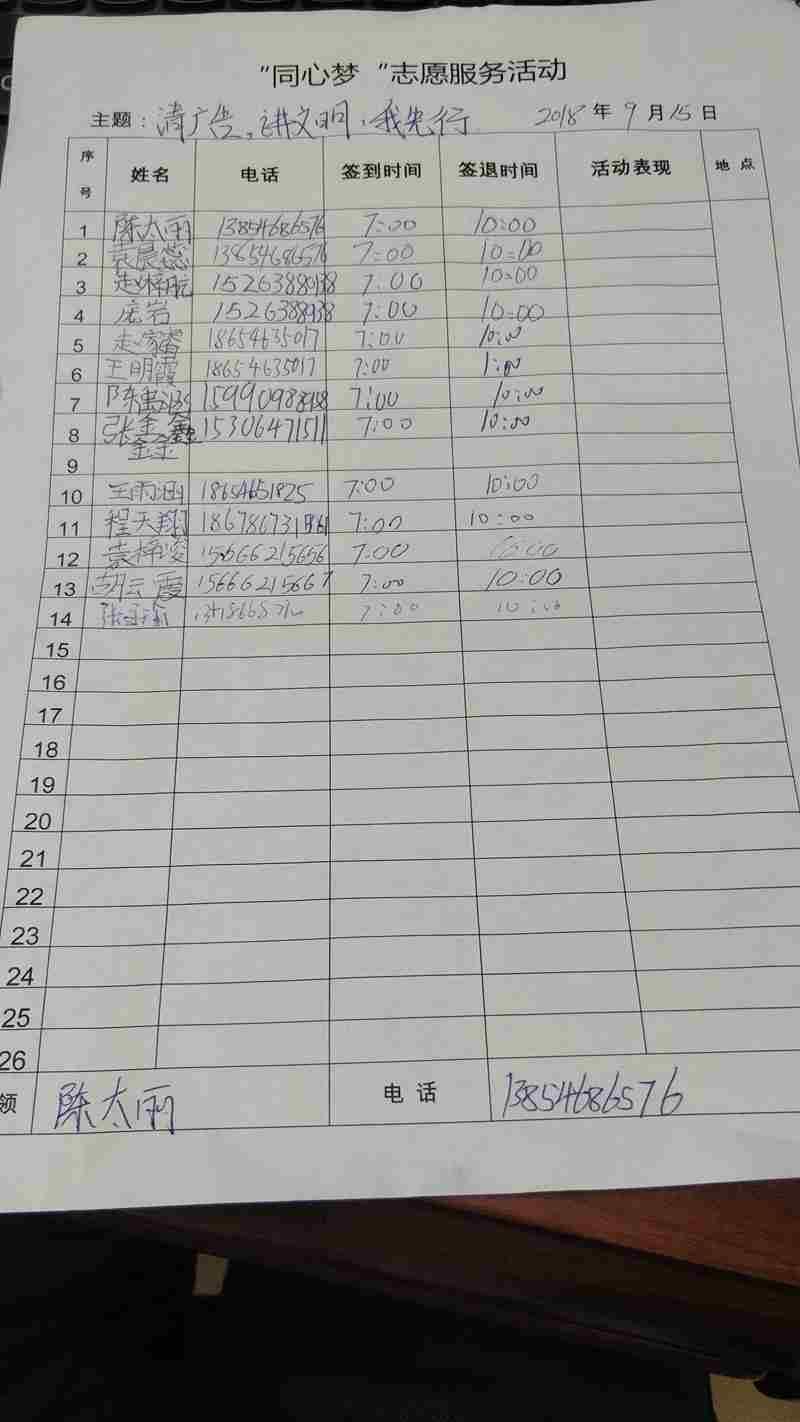 "同心梦 "志愿服务活动
主题：清广告,讲文明,我先行 2018年9月15日
序号 姓名 电话 签到时间 签退时间 活动表现 地点
1 陈太雨 13854686576 7:00 10:00
2 袁晨蕊 13854686576 7:00 10:00
3 15263888938 7:00 10:00
4 庞岩 15263888938 7:00 10:00
5 赵家睿 18654635017 7:00 10:00
6 王明霞 18654635017 7:00
7 7:00 10:00
8 张金鑫 15306471511 7:00 10:00
9
10 王雨涵 18654651825 7:00 10:00
11 程天翔 7:00 10:00
12 袁梓凌 15666215656 7:00 10:00
13 胡云霞 15666215667 7:00 10:00
14 7:00 10:00
15
16
17
18
19
20
21
22
23
24
25
26
领 陈太雨 电话 13854686576